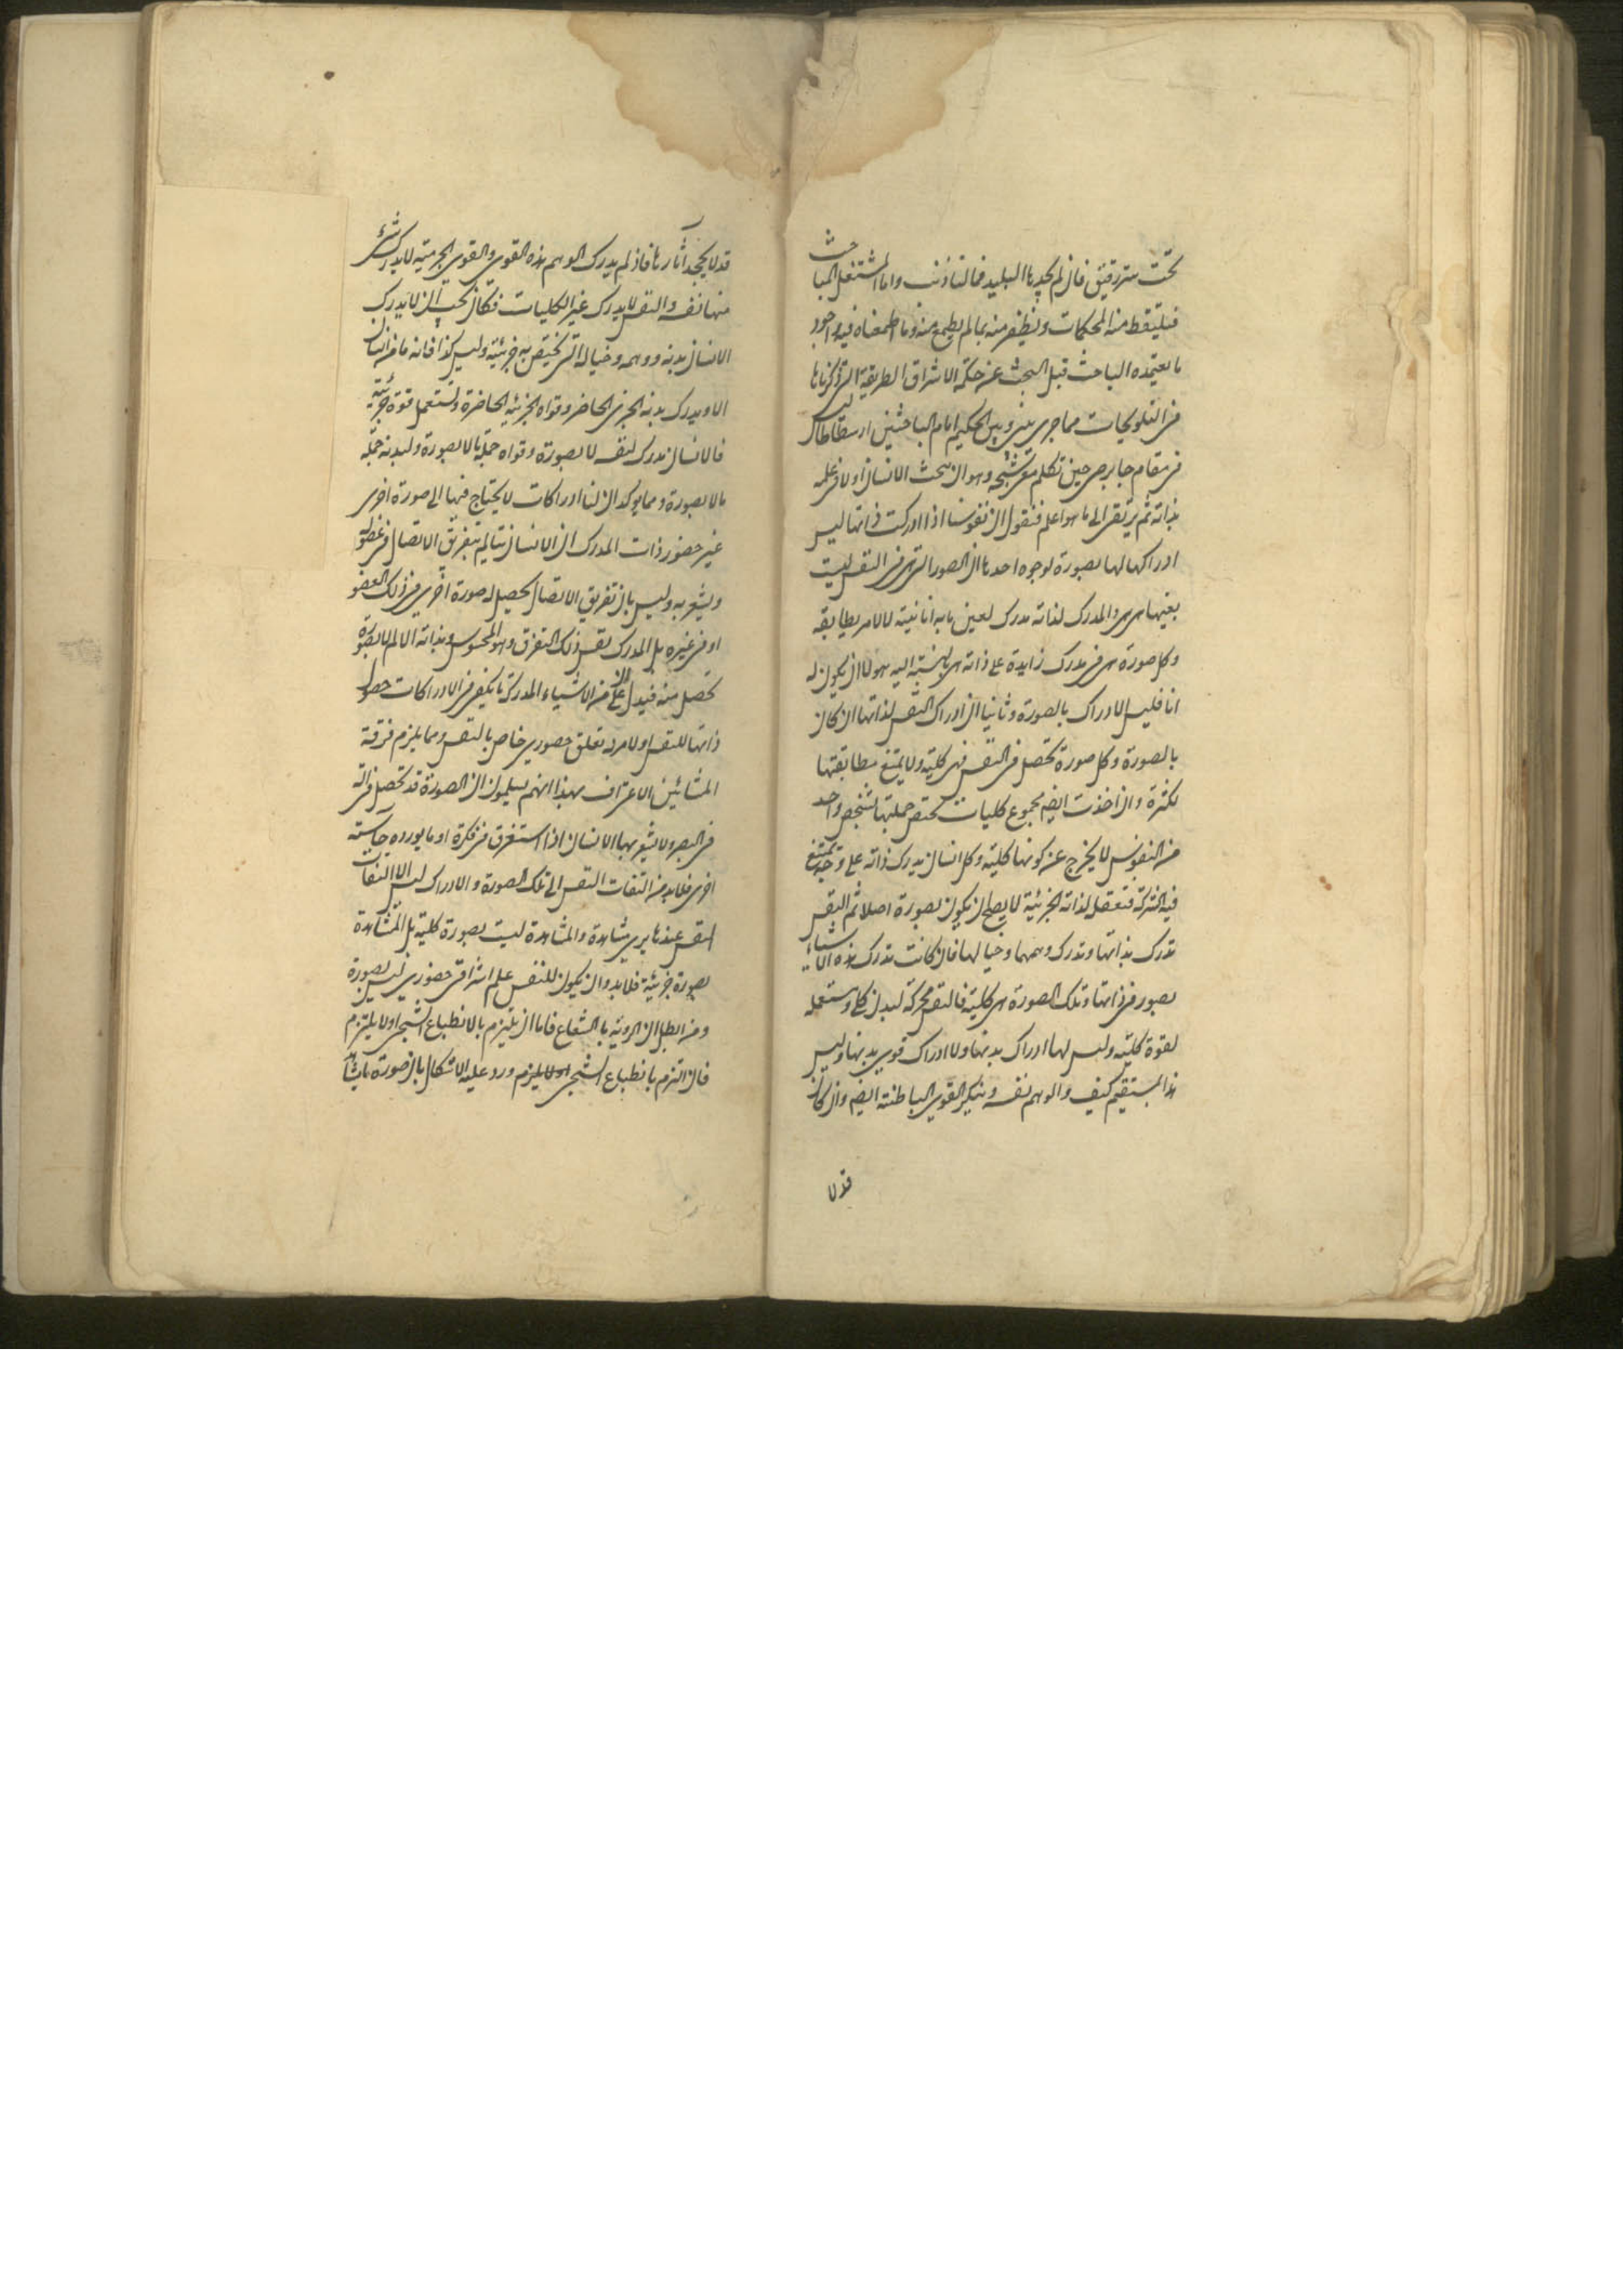 تحت ستر رقیق فان لم یجدها البلید فما لنا ذنب واما المشتغل المباحث
فیلتقط منه المحکمات ویظفر منه بما لم یطمع منه وما طمعناه فیه واجود
ما یعتمده الباحث قبل البحث عن حکمة الاشراق الطریقة التی ذکرناها
فی التلویحات مما جری بینی وبین الحکیم امام الباحثین ارسطاطالیس
فی مقام جابرص حین تکلم معی شبحه وهو ان یبحث الانسان اولا فی علمه
بذاته ثم یرتقی الی ما هو اعلم فنقول ان نفوسنا اذا ادرکت ذاتها لیس
ادراکها لها بصورة لوجوه احدها ان الصور التی هی فی النفس لیست
بعینها هی هی والمدرک لذاته مدرک لعین ما به انانیته لا لامر یطابقه
وکل صورة هی فی مدرک زایدة علی ذاته هی بالنسبة الیه هو لا ان یکون له
انا فلیس الادراک بالصورة وثانیا ان ادراک النفس لذاتها ان کان
بالصورة وکل صورة تحصل فی النفس فهی کلیة ولا یمتنع مطابقتها
لکثرة وان اخذت ایضم مجموع کلیات تختص جملتها بشخص واحد
من النفوس لا یخرج عن کونها کلیة وکل انسان یدرک ذاته علی وجه یمتنع
فیه الشرکة فتعقل لذاته الجزئیة لا یصح ان یکون بصورة اصلا ثم النفس
تدرک بذاتها وتدرک وهمها وخیالها فان کانت تدرک هذه الاشیاء
بصور فی ذاتها وتلک الصورة هی کلیة فالنفس محرکة لبدن کلی ومستعملة
لقوة کلیة ولیس لها ادراک بدنها ولا ادراک قوی بدنها ولیس
هذا بمستقیم کیف والوهم نفسه وینکر القوی الباطنة ایضم وان کان
قد لا
قد لا یجحد آثارها فاذ لم یدرک الوهم هذه القوی والقوی الجرمیة لا یدرک شئ
منها نفسه والنفس لا یدرک غیر الکلیات فکان یجب ان لا یدرک
الانسان بدنه ووهمه وخیاله التی یختص به جزئیة ولیس کذا فانه ما من انسان
الا ویدرک بدنه الجزئی الحاضر وقواه الجزئیة الحاضرة ویستعمل قوة جزئیة
فالانسان مدرک لنفسه لا بصورة وقواه جملة ما لا بصورة ولبدنه جملة
ما لا بصورة ومما یؤکد ان لنا ادراکات لا یحتاج فیها الی صورة اخری
غیر حضور ذات المدرک ان الانسان یتالم بتفریق الاتصال فی عضو له
ویشعر به ولیس بان تفریق الاتصال یحصل له صورة اخری فی ذلک العضو
او فی غیره بل المدرک نفس ذلک التفرق وهو المحسوس وبذاته الالم لا بصورة
تحصل منه فیدل علی ان من الاشیاء المدرکة ما یکفی فی الادراکات حصول
ذاتها للنفس او لامر له تعلق حضوری خاص بالنفس ومما یلزم فرقة
المشائین الاعتراف بهذا انهم یسلمون ان الصورة قد تحصل فی آلة
فی البصر ولا یشعر بها الانسان اذا استغرق فی فکرة او ما یورده حاسة
اخری فلا بد من التفات النفس الی تلک الصورة والادراک لیس الا التفات
النفس عند ما یری مشاهدة والمشاهدة لیست بصورة کلیة بل المشاهدة
بصورة جزئیة فلا بد وان یکون للنفس علم اشراقی حضوری لیس بصورة
ومن ابطل ان الرویة بالشعاع فاما ان یلتزم بالانطباع الشبحی او لا یلتزم
فان التزم بانطباع الشبحی او لا یلزم ورد علیه الاشکال بان صورة ما یشاهد